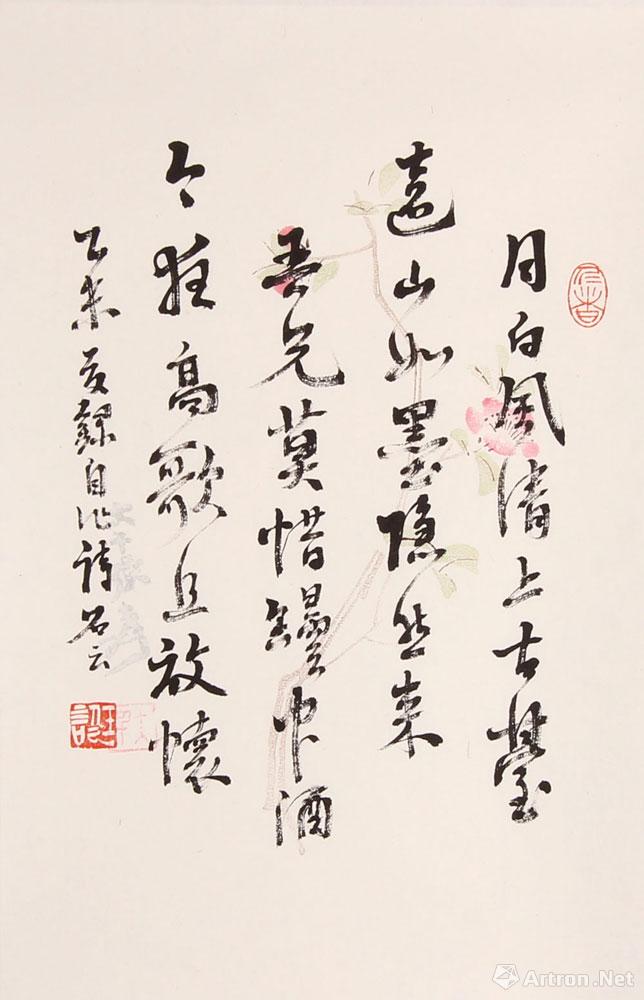 月白風清上古臺
遠山如墨隱然來
吾兄莫惜罎中酒
今狂高歌且放懷
乙未夏錄自作詩 石云
Artron.Net